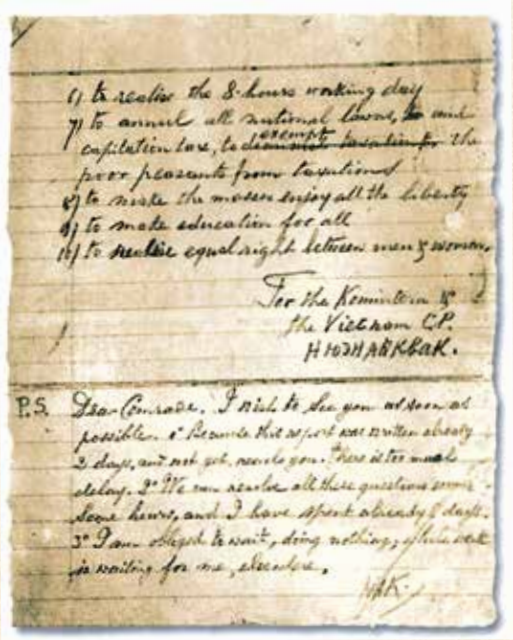 6) to realise the 8-hours working day
7) to annul all national loans, to and
exempt
capitation tax, to the
poor peasants from taxations
8) to make the masses enjoy all the liberty
9) to make education for all
10) to realise equal right between men & woman.
For the Komintern &
the Vietnam C.P.
P.S. Dear Comrade. I wish to see you as soon as
possible. 1° Because this report was written already
2 days, and not yet reach you. There is too much
delay. 2° We can resolve all these questions
some hours, and I have spent already days.
3° I am obliged to wait, doing nothing, while work
is waiting for me, elsewhere.